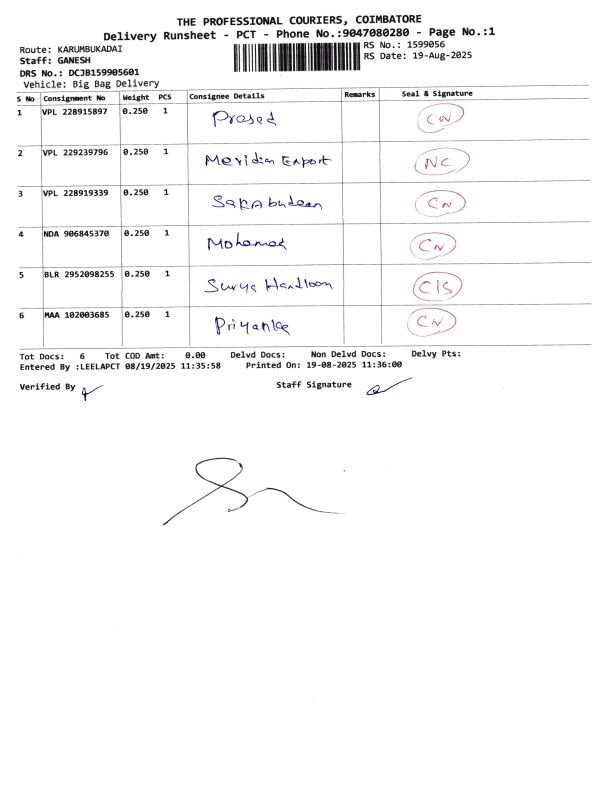 THE PROFESSIONAL COURIERS, COIMBATORE
Delivery Runsheet - PCT - Phone No.:9047080280 - Page No.:1
Route: KARUMBUKADAI
RS No.: 1599056
Staff: GANESH
RS Date: 19-Aug-2025
DRS No.: DCJB159905601
Vehicle: Big Bag Delivery
S No Consignment No Weight PCS Consignee Details Remarks Seal & Signature
1 VPL 228915897 0.250 1 Prased CN
2 VPL 229239796 0.250 1 Meridian Export NC
3 VPL 228919339 0.250 1 CN
4 NDA 906845370 0.250 1 Mohamad CN
5 BLR 2952098255 0.250 1 Surya Handloom C/S
6 MAA 102003685 0.250 1 Priyanka CN
Tot Docs: 6 Tot COD Amt: 0.00 Delvd Docs: Non Delvd Docs: Delvy Pts:
Entered By :LEELAPCT 08/19/2025 11:35:58 Printed On: 19-08-2025 11:36:00
Verified By Staff Signature